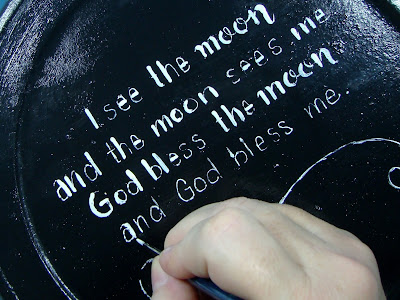 I see the moon
and the moon sees me
God bless the moon
and God bless me.